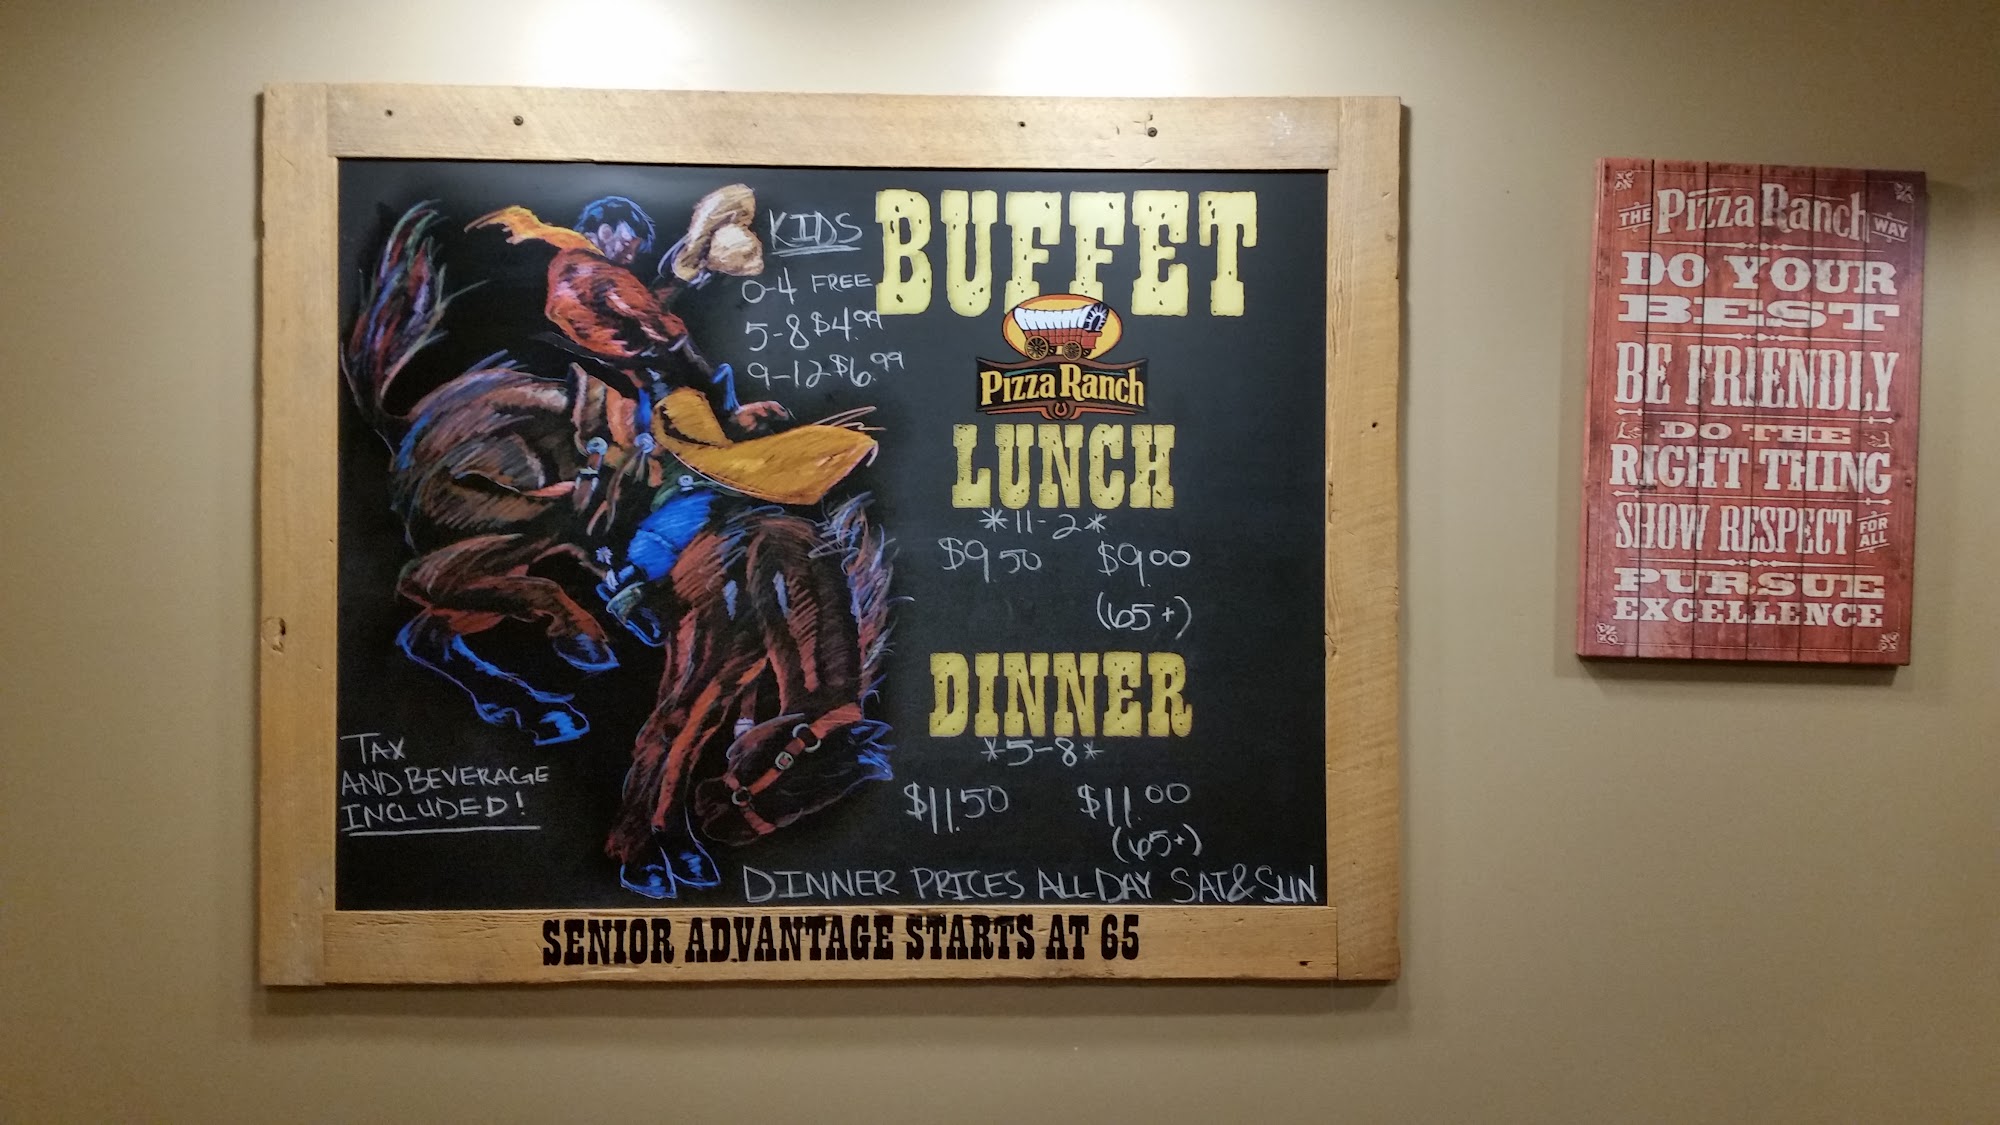 KIDS
0-4 FREE
5-8 $4.99
9-12 $6.99
BUFFET
Pizza Ranch
LUNCH
*11-2*
$9.50 $9.00
(65+)
DINNER
*5-8*
$11.50 $11.00
(65+)
TAX
AND BEVERAGE
INCLUDED!
DINNER PRICES ALL DAY SAT & SUN
SENIOR ADVANTAGE STARTS AT 65
THE Pizza Ranch WAY
DO YOUR
BEST
BE FRIENDLY
DO THE
RIGHT THING
SHOW RESPECT FOR ALL
PURSUE
EXCELLENCE